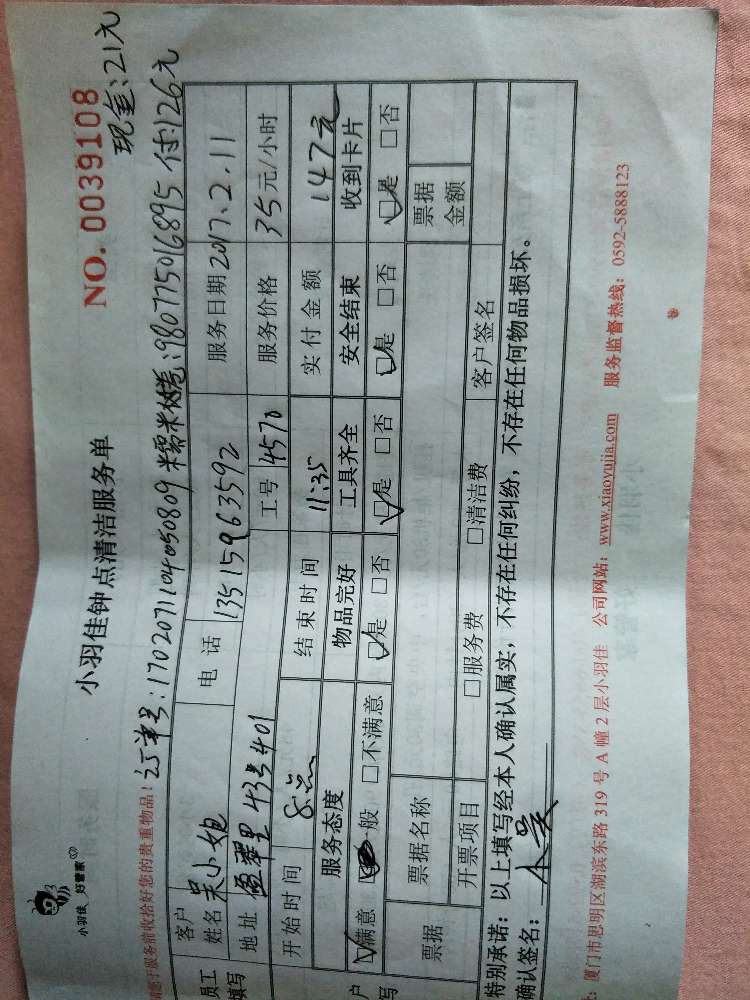 小羽佳 好管家
小羽佳钟点清洁服务单
NO. 0039108
现金:21元
请您于服务前收拾好您的贵重物品!
订单号:1702071104050809 糯米 :9807750168 95 付:126元
员工填写
客户姓名 吴小姐 电话 13515963592 服务日期 2017.2.11
地址 盈翠里43号401 工号 4570 服务价格 35元/小时
开始时间 8点 结束时间 11:35 实付金额 147元
服务态度 物品完好 工具齐全 安全结束 收到卡片
☑满意 □一般 □不满意 ☑是 □否 ☑是 □否 ☑是 □否 ☑是 □否
票据 票据名称 票据金额
开票项目 □服务费 □清洁费 客户签名
特别承诺:以上填写经本人确认属实,不存在任何纠纷,不存在任何物品损坏。
确认签名:
厦门市思明区湖滨东路 319 号 A 幢 2 层小羽佳 公司网站:www.xiaoyujia.com 服务监督热线:0592-5888123